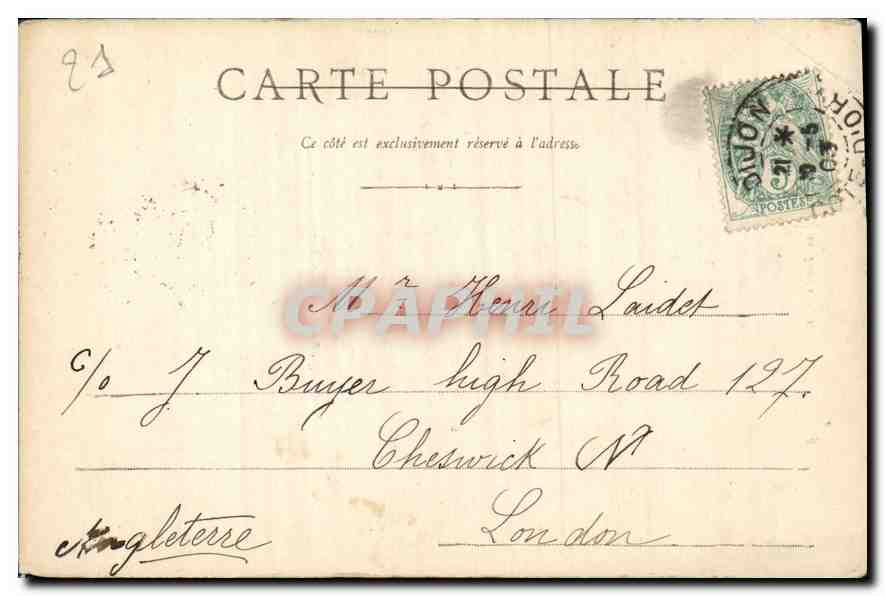 CARTE POSTALE
Ce côté est exclusivement réservé à l'adresse
DIJON
21 * 9-5 03
CÔTE-D'OR
5
POSTES
CPAPHIL
Mr Henri Laidet
c/o J Buyer high Road 127.
Cheswick
London
Angleterre